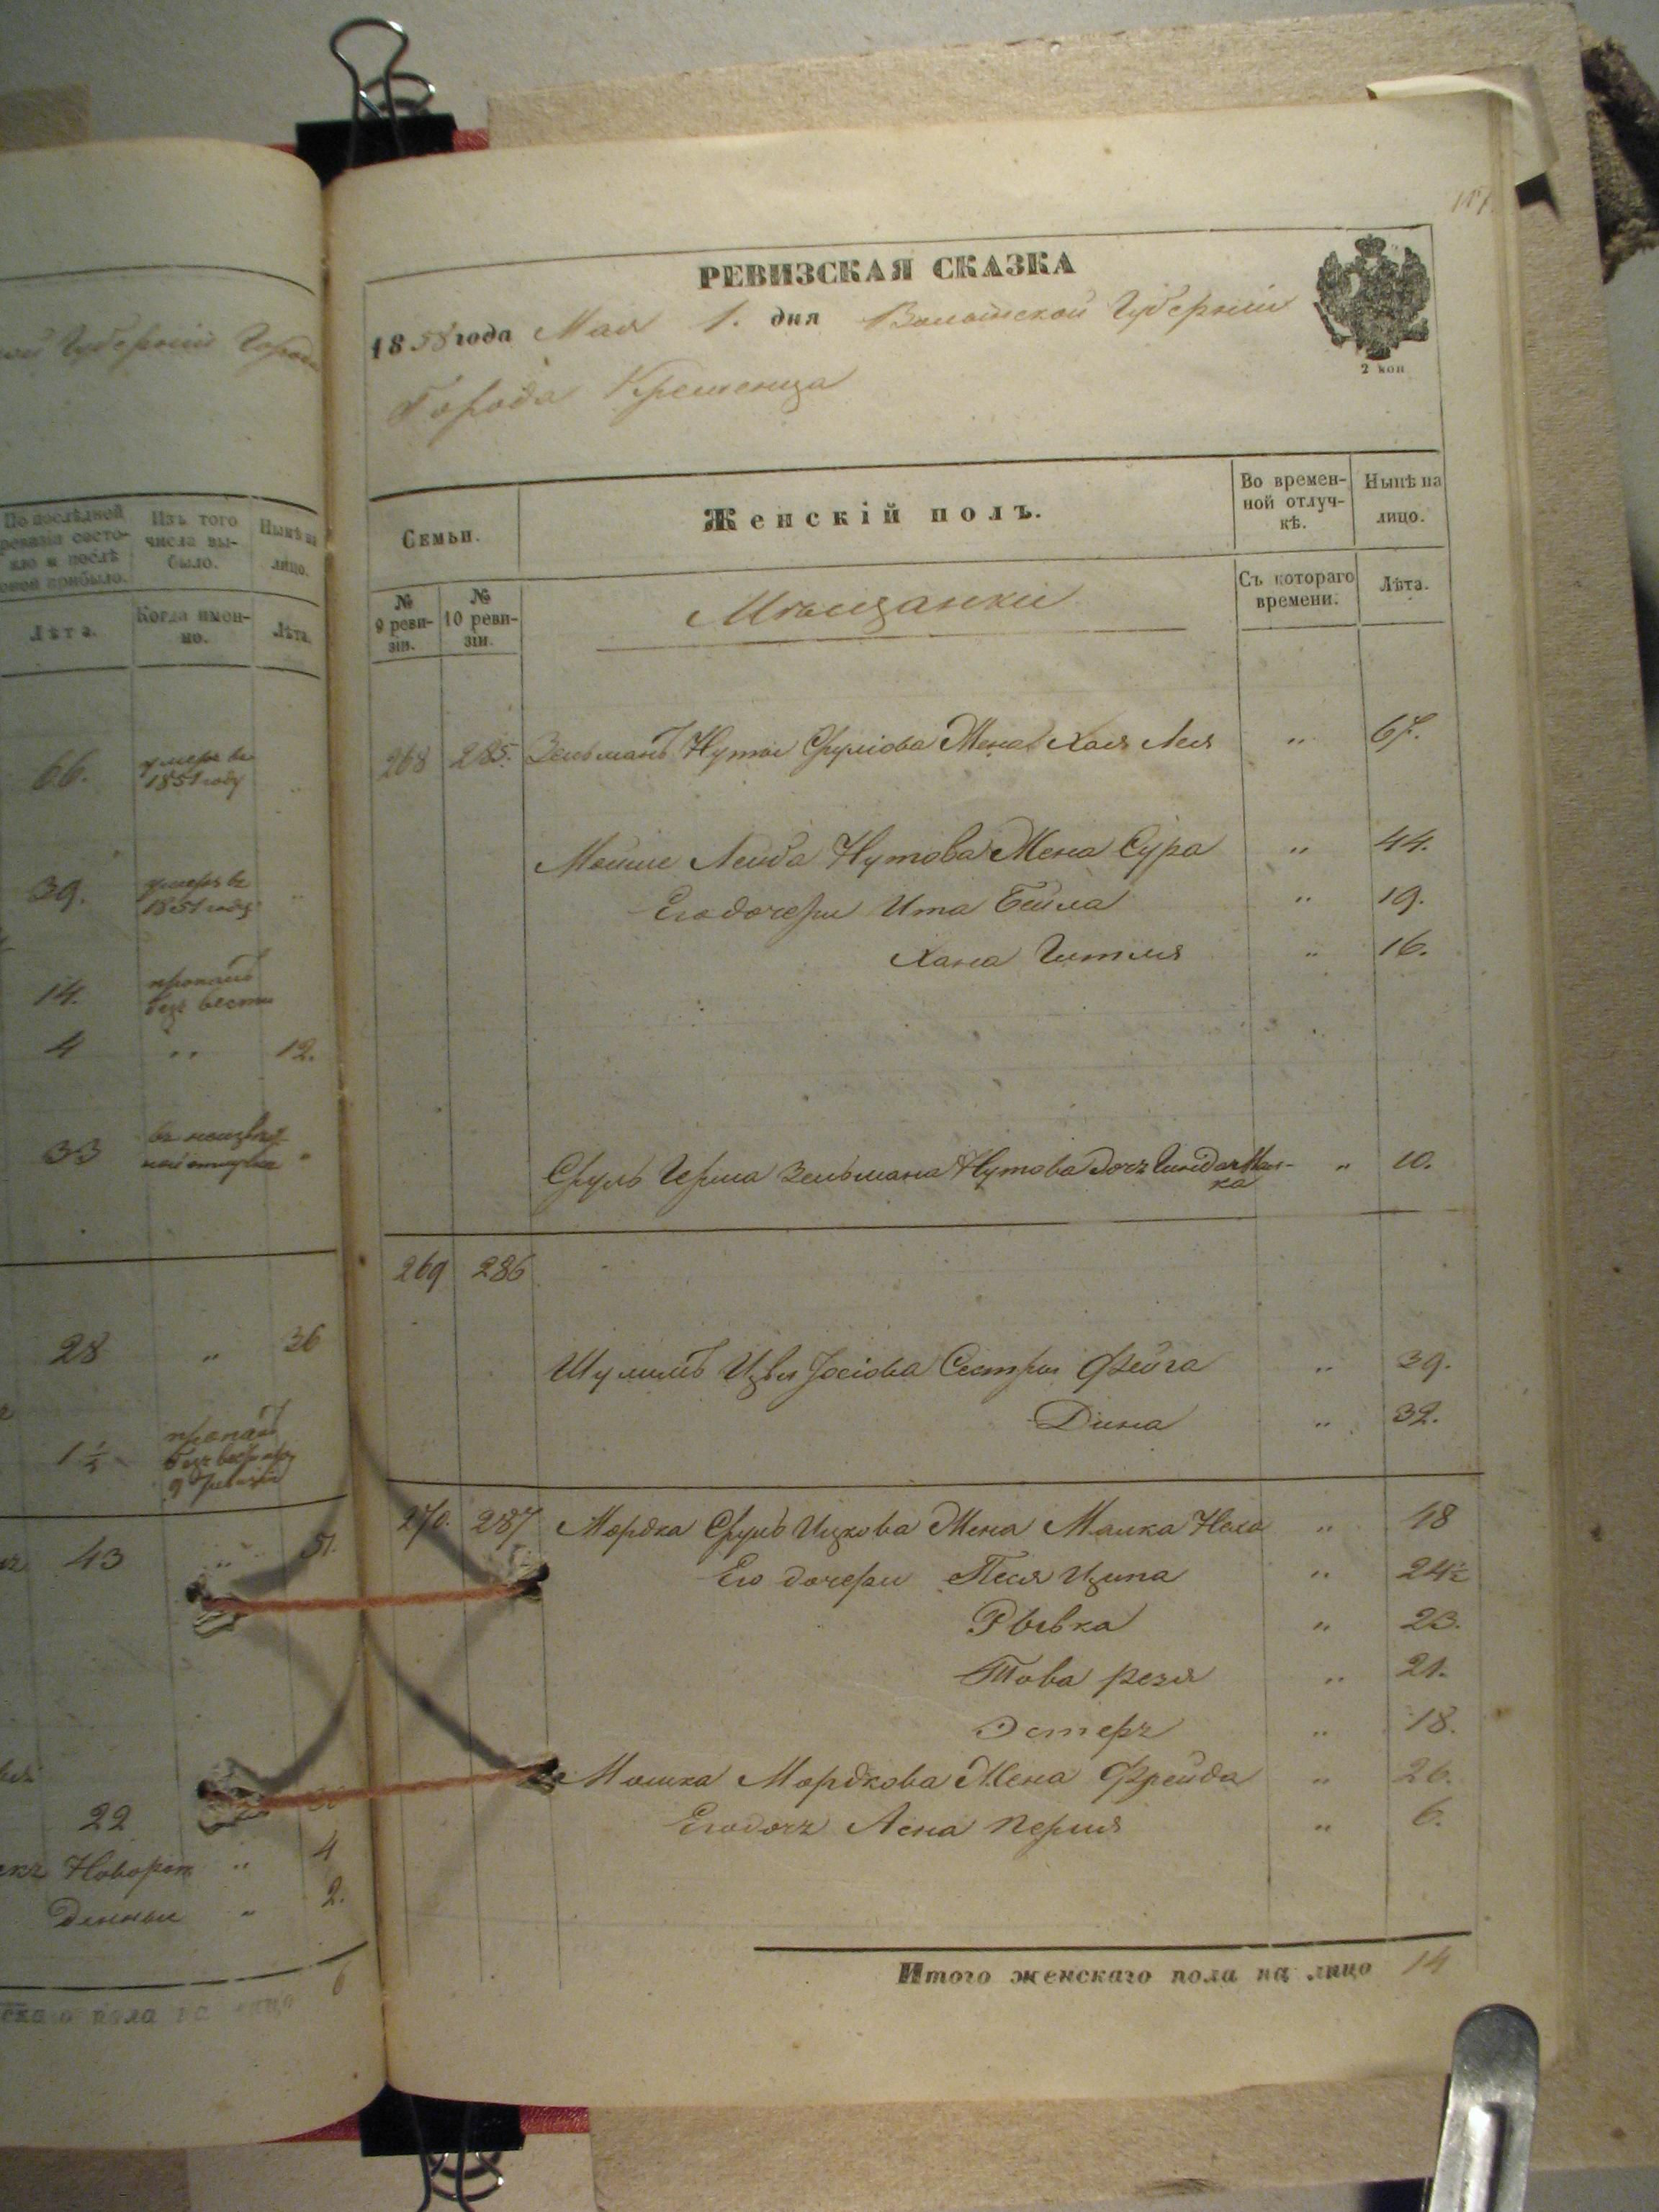 ой Губерніи Города
По послѣдней ревизіи состо-
яло и послѣ
оной прибыло.
Изъ того
числа вы-
было.
Нынѣ на
лицо.
Лѣта.
Когда имен-
но.
Лѣта.
66. умеръ въ
1851 году
39. умеръ въ
1851 году
14. пропалъ
безъ вести
4 " 12.
33
28 " 36
1½ пропалъ
43 " 51.
22
Новорож " 4
денные " 2.
6
РЕВИЗСКАЯ СКАЗКА
1858 года Мая 1. дня Волынской Губерніи
2 коп
Города Кременца
Семьи.
Женскій полъ.
Во времен-
ной отлуч-
кѣ.
Нынѣ на
лицо.
№
9 реви-
зіи.
№
10 реви-
зіи.
Мѣщанки
Съ котораго
времени.
Лѣта.
268 285. Зельманъ Нуты Сруліова Жена Хая Лея " 67.
Мошие Лейба Нутова Жена Сура " 44.
Его дочери Ита Бейла " 19.
Хана Гитля " 16.
Сруль Герша Зельмана Нутова дочь " 10.
269 286
Шулимъ Цви Іосіова Сестры Фейга " 39.
Дина " 32.
270. 287 Мордка Сруль Ицкова Жена Малка Неха " 48
Его дочери Песя Ципа " 24½
Рывка " 23.
Това резя " 21.
Эстеръ " 18.
Мошка Мордкова Жена Фрейда " 26.
Его дочь Лена Перля " 6.
Итого женскаго пола на лицо 14